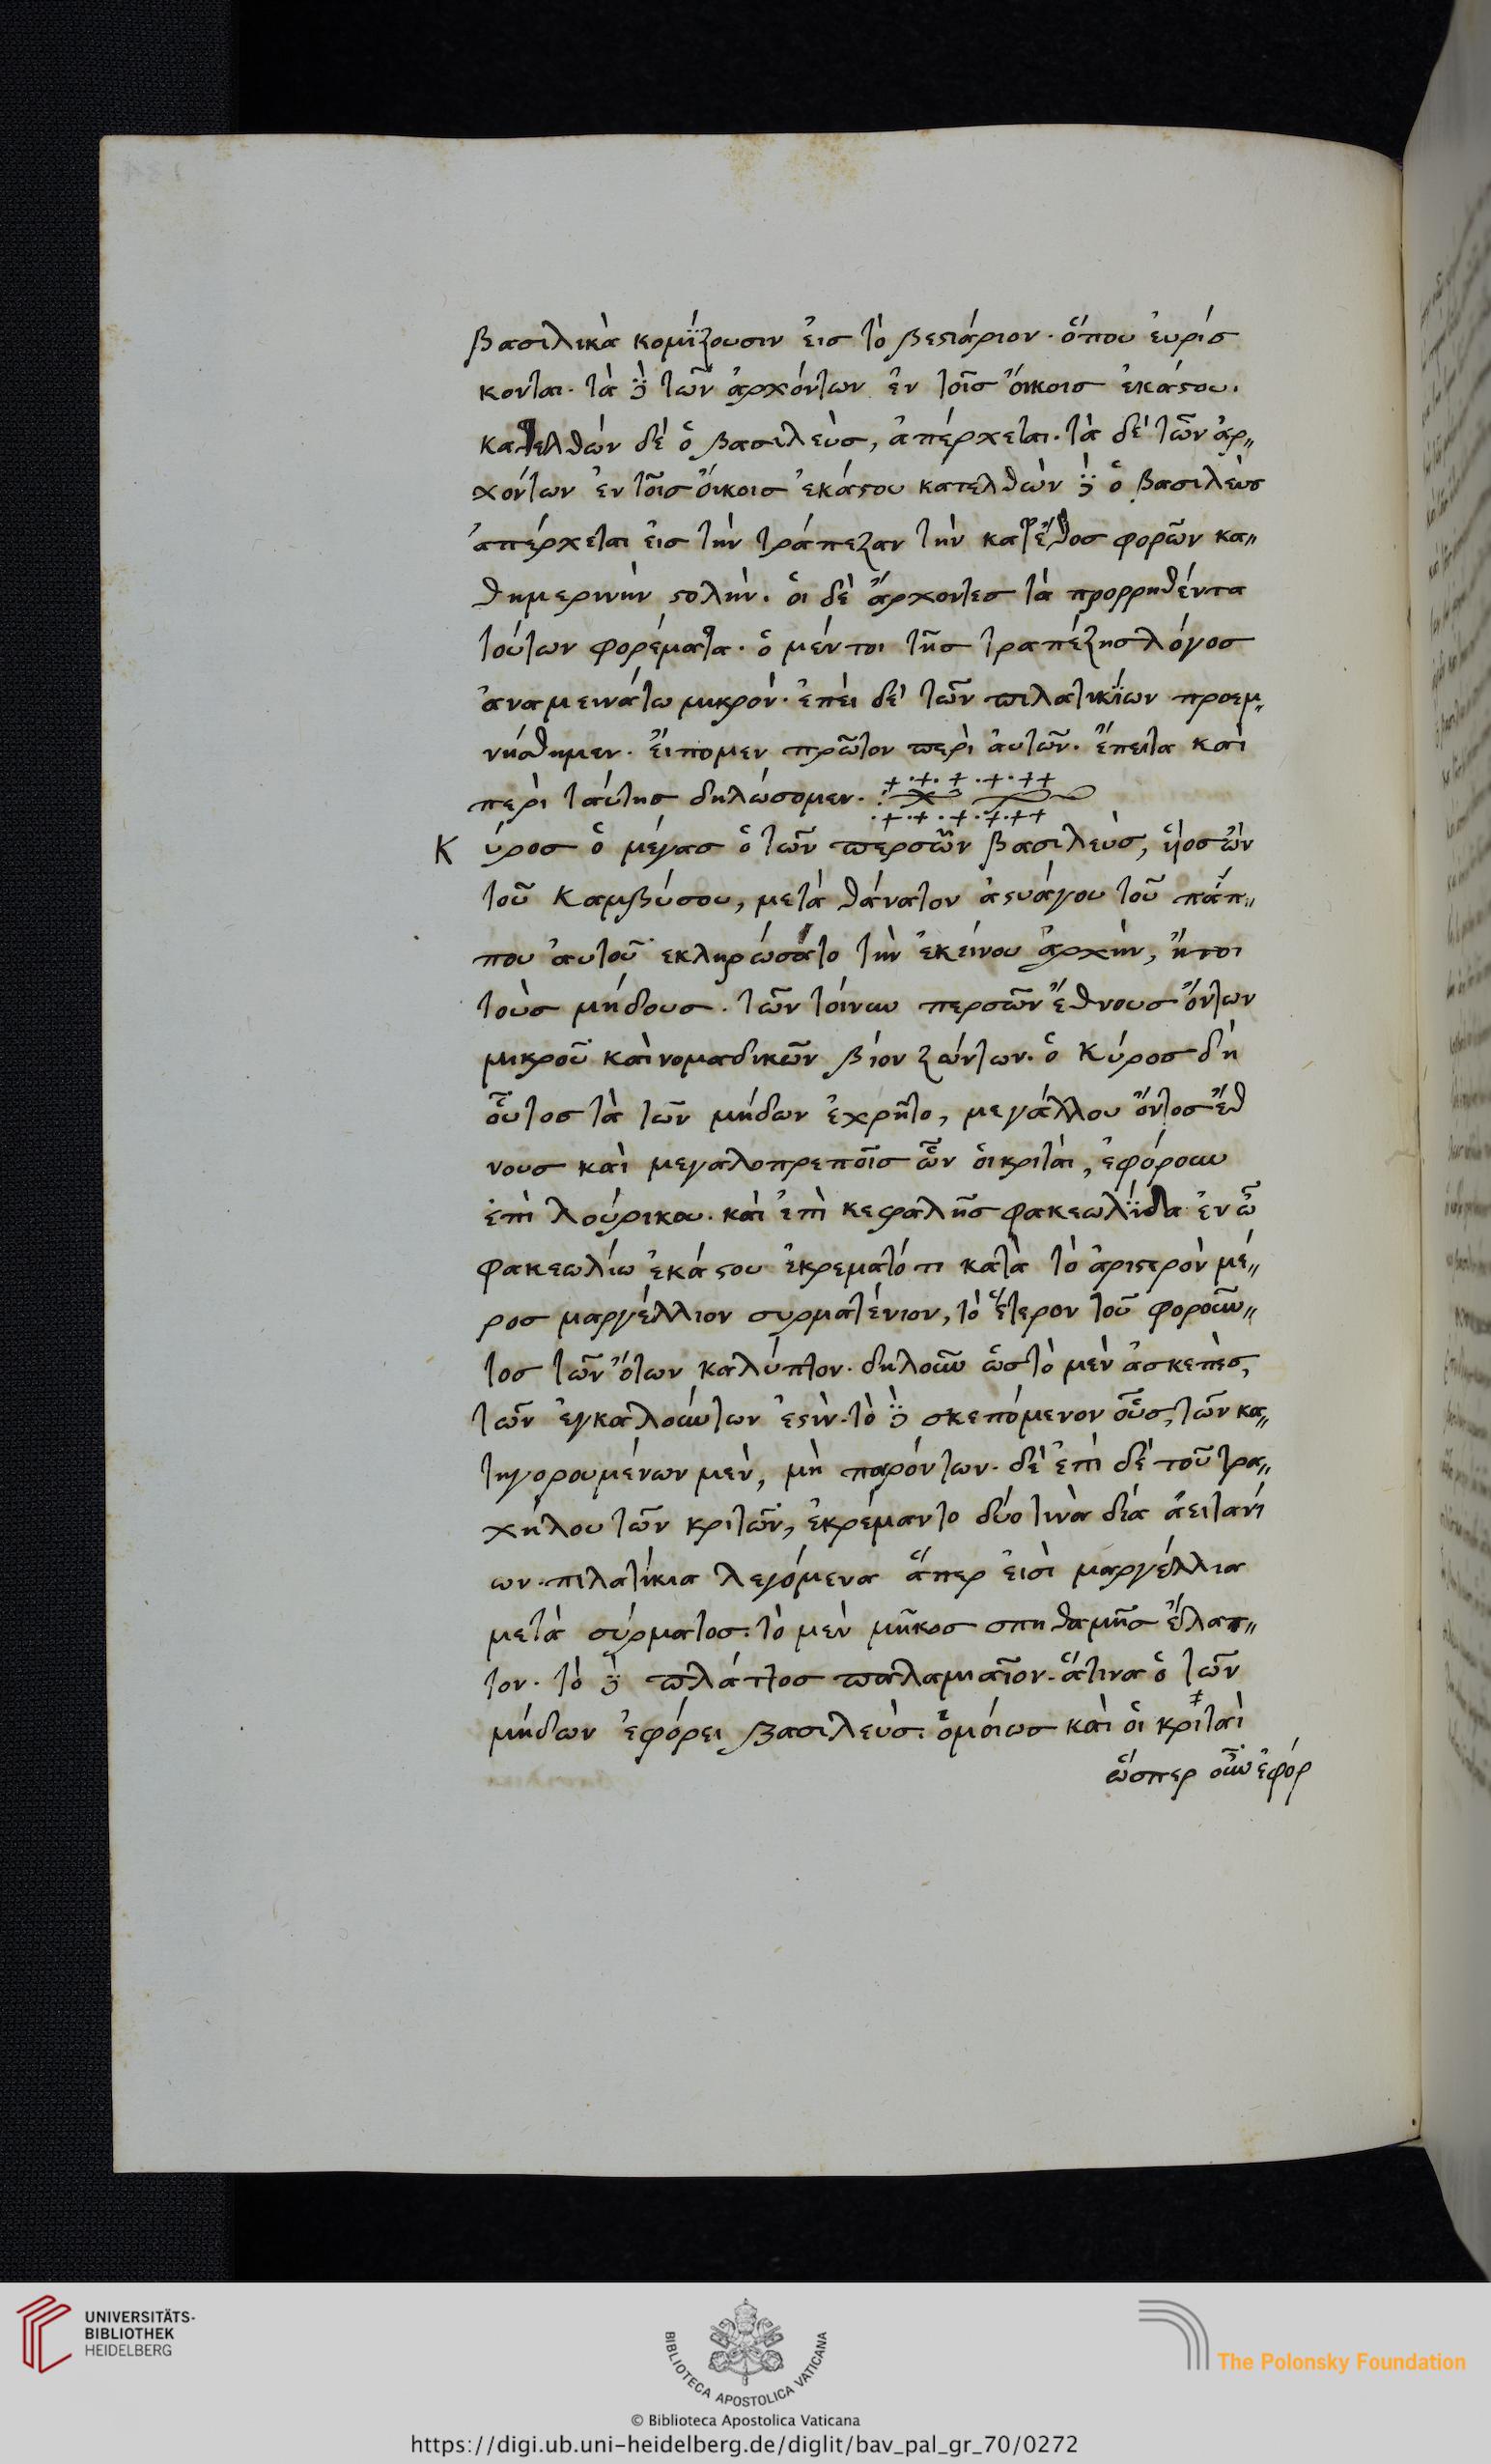 βασιλικὰ κομΐζουσιν ἐισ τὸ βεστιάριον· ὅπου ἑυρίσ
κονται· τὰ δὲ τῶν ἀρχόντων ἐν τοῖσ ὄικοισ ἑκάστου.
κατελθὼν δὲ ὁ βασιλεὺσ, ἀπέρχεται. τὰ δὲ τῶν ἀρ〃
χόντων ἐν τοῖσ ὄικοισ ἑκάστου κατελθὼν δὲ ὁ βασιλεὺσ
ἀπέρχεται ἐισ τὴν τράπεζαν τὴν κατ' ἔθοσ φορῶν κα〃
θημερινὴν στολὴν. ὁι δὲ ἄρχοντεσ τὰ προρρηθέντα
τούτων φορέματα. ὁ μέντοι τῆσ τραπέζησ λόγοσ
ἀναμεινάτω μικρὸν. ἐπεὶ δὲ τῶν πιλατικΐων προεμ〃
νήσθημεν. ἔιπομεν πρῶτον περὶ ἀυτῶν. ἔπειτα καὶ
περὶ ταύτησ δηλώσομεν.
Κύροσ ὁ μέγασ ὁ τῶν περσῶν βασιλεὺσ, ὑιὸσ ὢν
τοῦ Καμβύσου, μετὰ θάνατον ἀστυάγου τοῦ πάπ〃
που ἀυτοῦ ἐκληρώσατο τὴν ἐκείνου ἀρχὴν, ἤτοι
τοὺσ μήδουσ. τῶν τοίνυν περσῶν ἔθνουσ ὄντων
μικροῦ καὶ νομαδικῶν βίον ζώντων. ὁ Κύροσ δὴ
οὗτοσ τὰ τῶν μήδων ἐχρῆτο, μεγάλλου ὄντοσ ἔθ
νουσ καὶ μεγαλοπρεποῖσ ὧν ὁι κριταὶ, ἐφόρουν
ἐπὶ λούρικου. καὶ ἐπὶ κεφαλῆσ φακεωλΐδα ἐν ὧ
φακεωλίω ἑκάστου ἐκρεματό τι κατὰ τὸ ἀριστερὸν μέ〃
ροσ μαργέλλιον συρματένιον, τὸ ἕτερον τοῦ φοροῦν〃
τοσ τῶν ὄτων καλύπτον. δηλοῦν ὡσ τὸ μὲν ἀσκεπὲσ,
τῶν ἐγκαλούντων ἐστὶν. τὸ δὲ σκεπόμενον οὖσ, τῶν κα〃
τηγορουμένων μὲν, μὴ παρόντων. δὲ ἐπὶ δὲ τοῦ τρα〃
χήλου τῶν κριτῶν, ἐκρέμαντο δύο τινὰ διὰ ἀειτανί
ων. πιλατίκια λεγόμενα ἅπερ ἐισὶ μαργέλλια
μετὰ σύρματοσ. τὸ μὲν μῆκοσ σπηθαμῆσ ἔλατ〃
τον. τὸ δὲ πλάττοσ παλαμιαῖον. ἅτινα ὁ τῶν
μήδων ἐφόρει βασιλεὺσ. ὁμοίωσ καὶ ὁι κριταὶ
ὥσπερ οὖν ἐφόρ
UNIVERSITÄTS-
BIBLIOTHEK
HEIDELBERG
BIBLIOTECA APOSTOLICA VATICANA
The Polonsky Foundation
© Biblioteca Apostolica Vaticana
https://digi.ub.uni-heidelberg.de/diglit/bav_pal_gr_70/0272